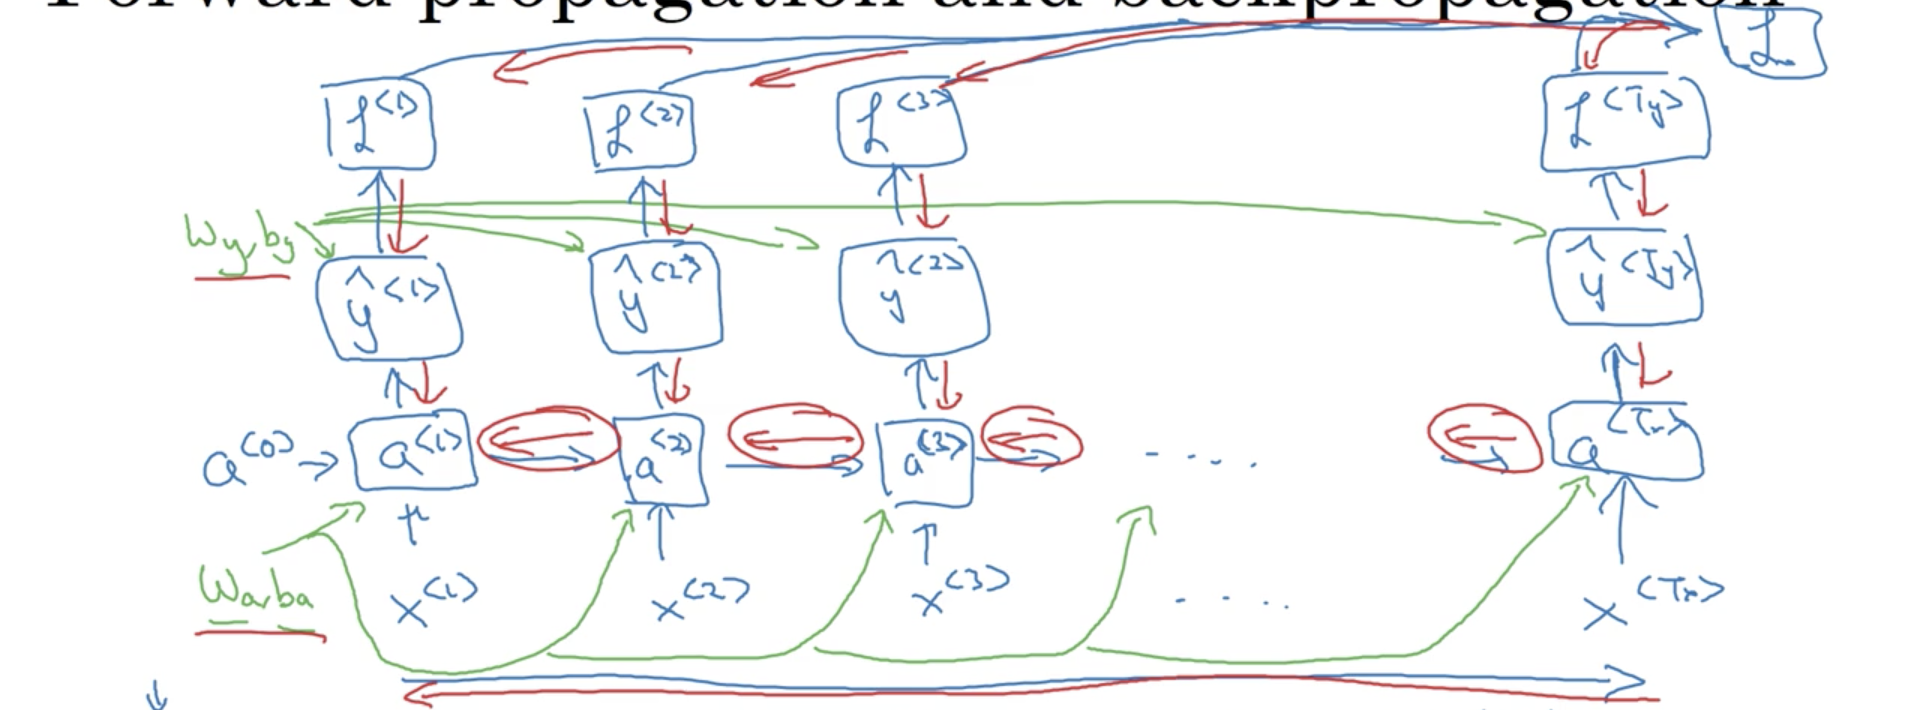 Forward propagation and backpropagation
ℒ
ℒ<1> ℒ<2> ℒ<3> ℒ<Ty>
Wy,by
ŷ<1> ŷ<2> ŷ<2> ŷ<Ty>
a<0> → a<1> a<2> a<3> - . . . . a<Tx>
Wa,ba
x<1> x<2> x<3> . . . . . x<Tx>